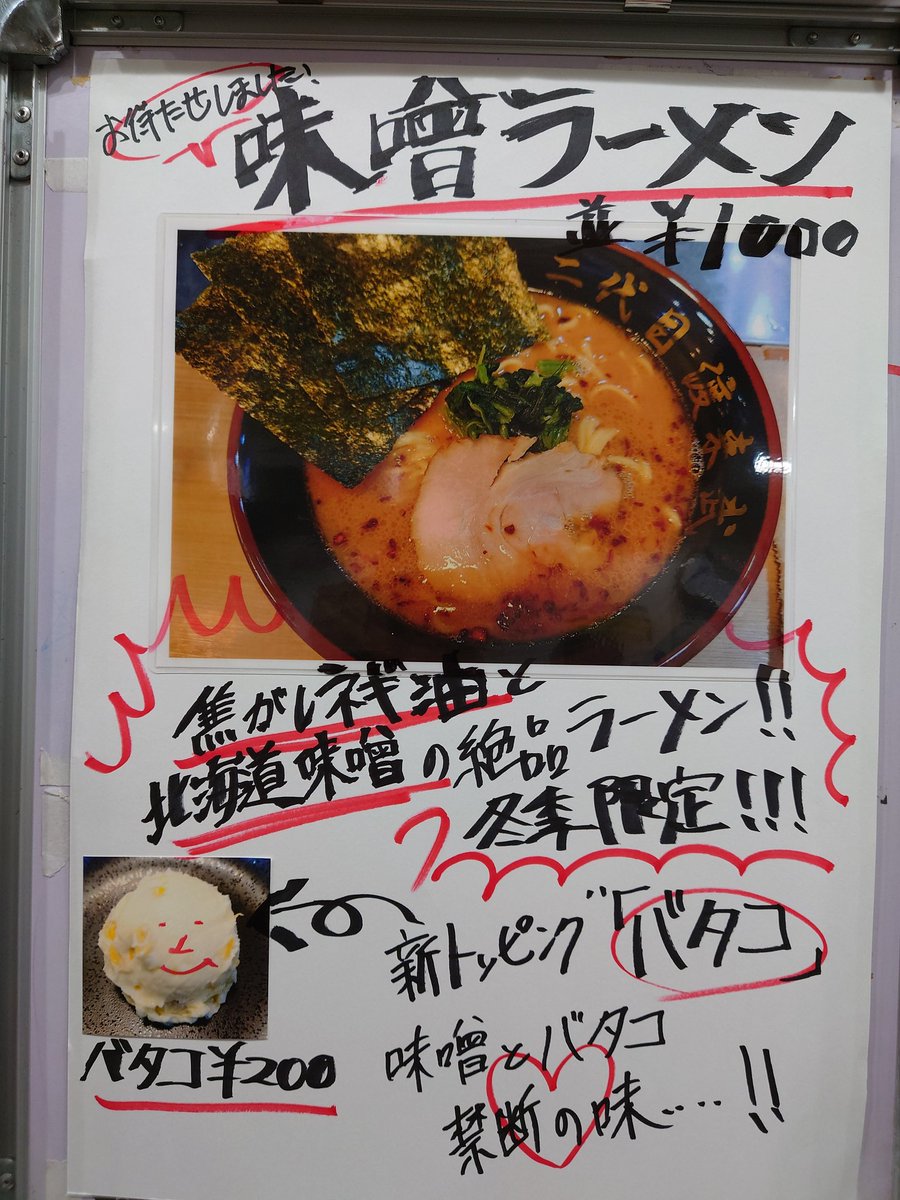 お待たせしました！
味噌ラーメン
並 ¥1000
二代目
焦がしネギ油と
北海道味噌の絶品ラーメン!!
冬季限定!!!
新トッピング「バタコ」
バタコ¥200
味噌とバタコ
禁断の味……!!